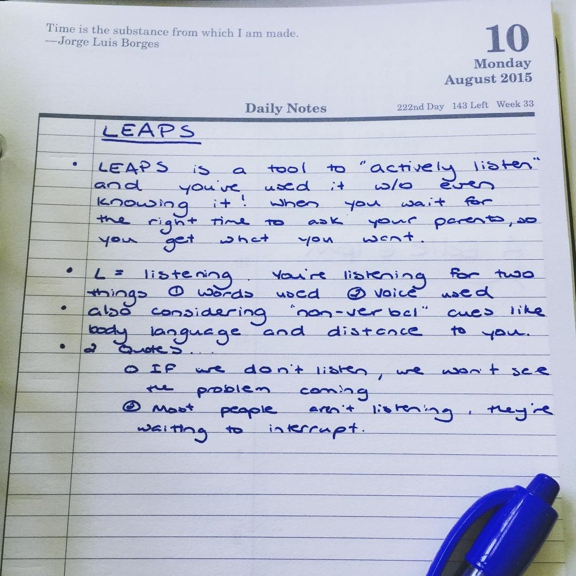 Time is the substance from which I am made.
—Jorge Luis Borges
10
Monday
August 2015
Daily Notes
222nd Day 143 Left Week 33
LEAPS
• LEAPS is a tool to "actively listen"
and you've used it w/o even
knowing it! When you wait for
the right time to ask your parents, so
you get what you want.
• L = listening. You're listening for two
things ① words used ② voice used
• also considering "non-verbal" cues like
body language and distance to you.
• 2 Quotes...
① IF we don't listen, we won't see
the problem coming
② Most people aren't listening, they're
waiting to interrupt.